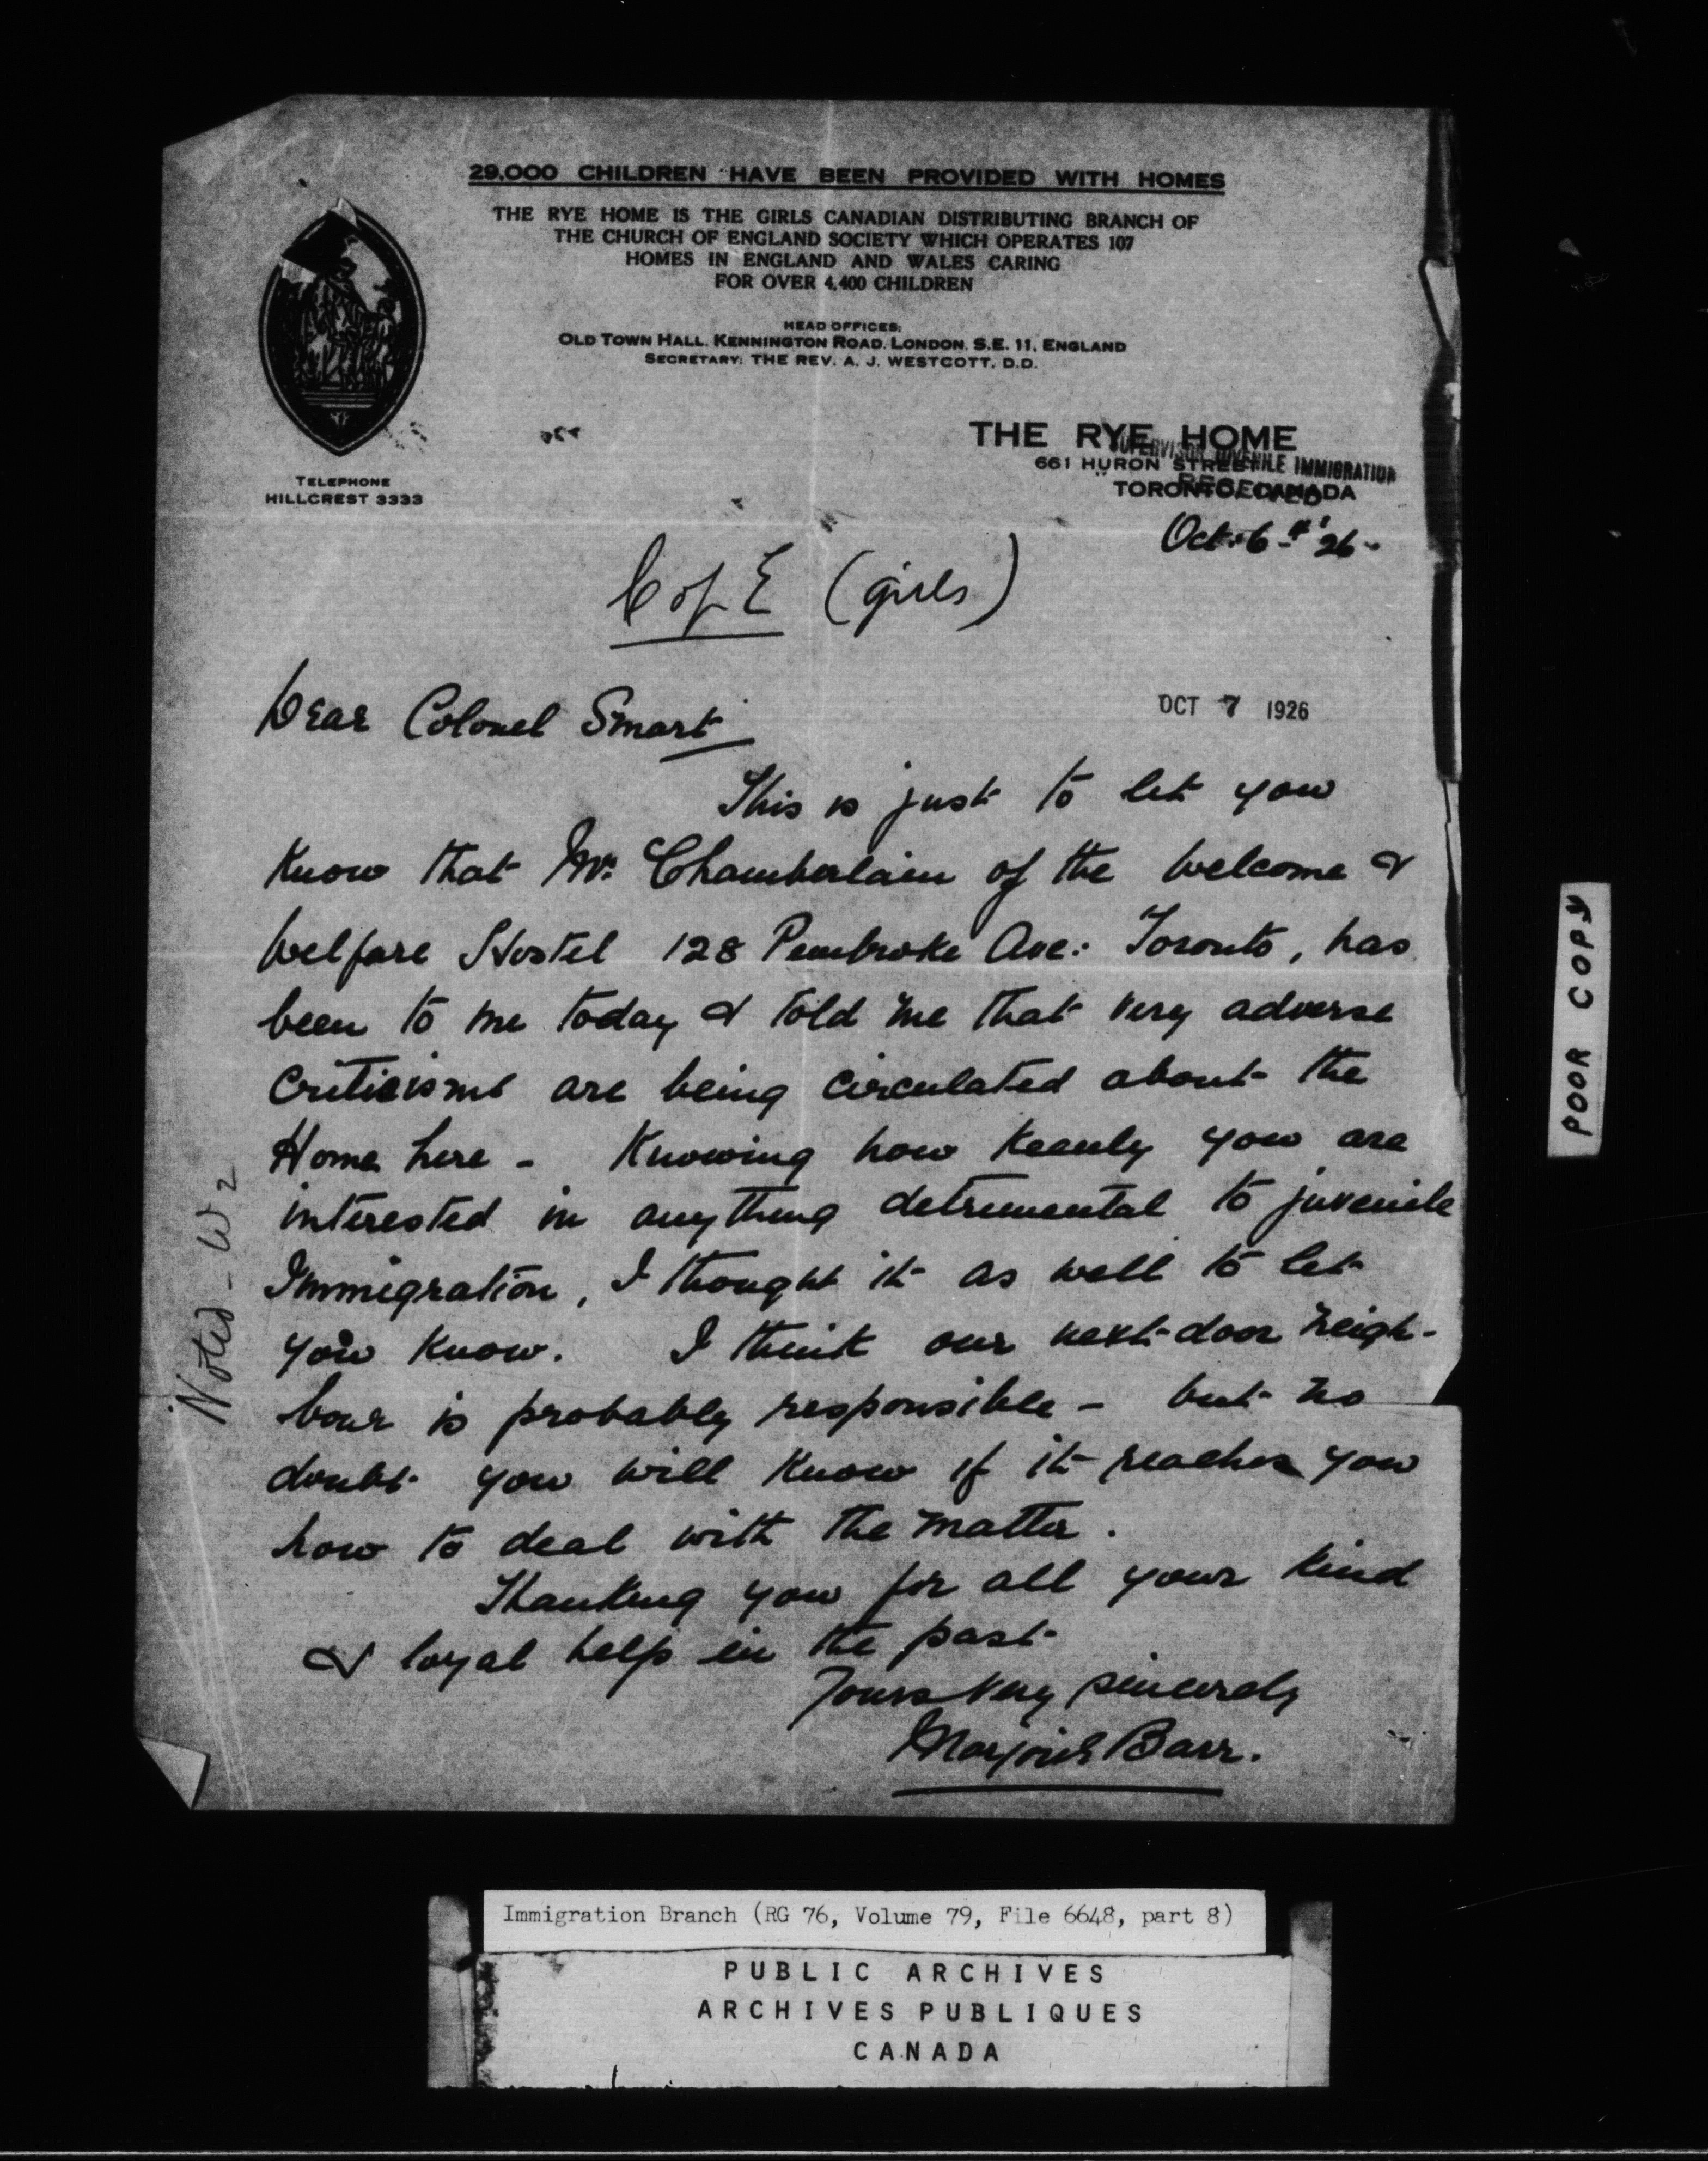 29,000 CHILDREN HAVE BEEN PROVIDED WITH HOMES
THE RYE HOME IS THE GIRLS CANADIAN DISTRIBUTING BRANCH OF
THE CHURCH OF ENGLAND SOCIETY WHICH OPERATES 107
HOMES IN ENGLAND AND WALES CARING
FOR OVER 4,400 CHILDREN
HEAD OFFICES:
OLD TOWN HALL, KENNINGTON ROAD, LONDON, S.E. 11, ENGLAND
SECRETARY: THE REV. A. J. WESTCOTT, D.D.
TELEPHONE
HILLCREST 3333
THE RYE HOME
661 HURON STREET
TORONTO, CANADA
SUPERVISOR JUVENILE IMMIGRATION
RECEIVED
Oct. 6th '26-
C of E (girls)
Dear Colonel Smart
OCT 7 1926
This is just to let you
know that Mr. Chamberlain of the Welcome &
Welfare Hostel 128 Pembroke Ave: Toronto, has
been to me today & told me that very adverse
criticisms are being circulated about the
Home here - Knowing how keenly you are
interested in anything detrimental to juvenile
Immigration, I thought it as well to let
you know. I think our next-door neigh-
bour is probably responsible - but no
doubt you will know if it reaches you
how to deal with the matter.
Thanking you for all your kind
& loyal help in the past
Yours very sincerely
Marjorie Barr.
Noted -
POOR COPY
Immigration Branch (RG 76, Volume 79, File 6648, part 8)
PUBLIC ARCHIVES
ARCHIVES PUBLIQUES
CANADA